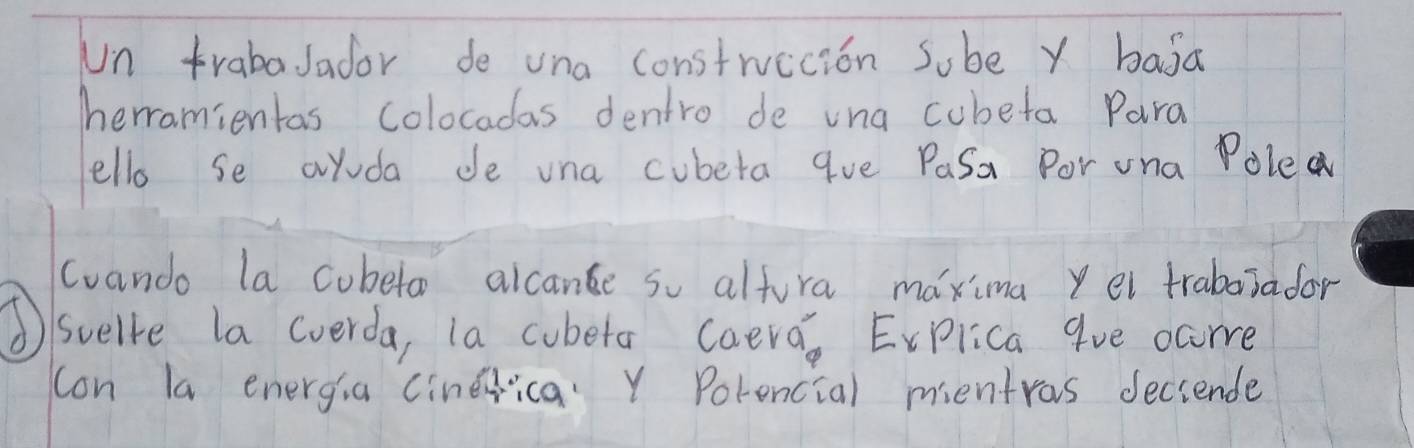 Un trabajador de una construcción sube y baja
herramientas colocadas dentro de una cubeta Para
ello se ayuda de una cubeta que Pasa Por una Polea
Cuando la cubeta alcance su altura máxima y el trabajador
suelte la cuerda, la cubeta caerá. Explica que ocurre
con la energía cinética y Potencial mientras deciende